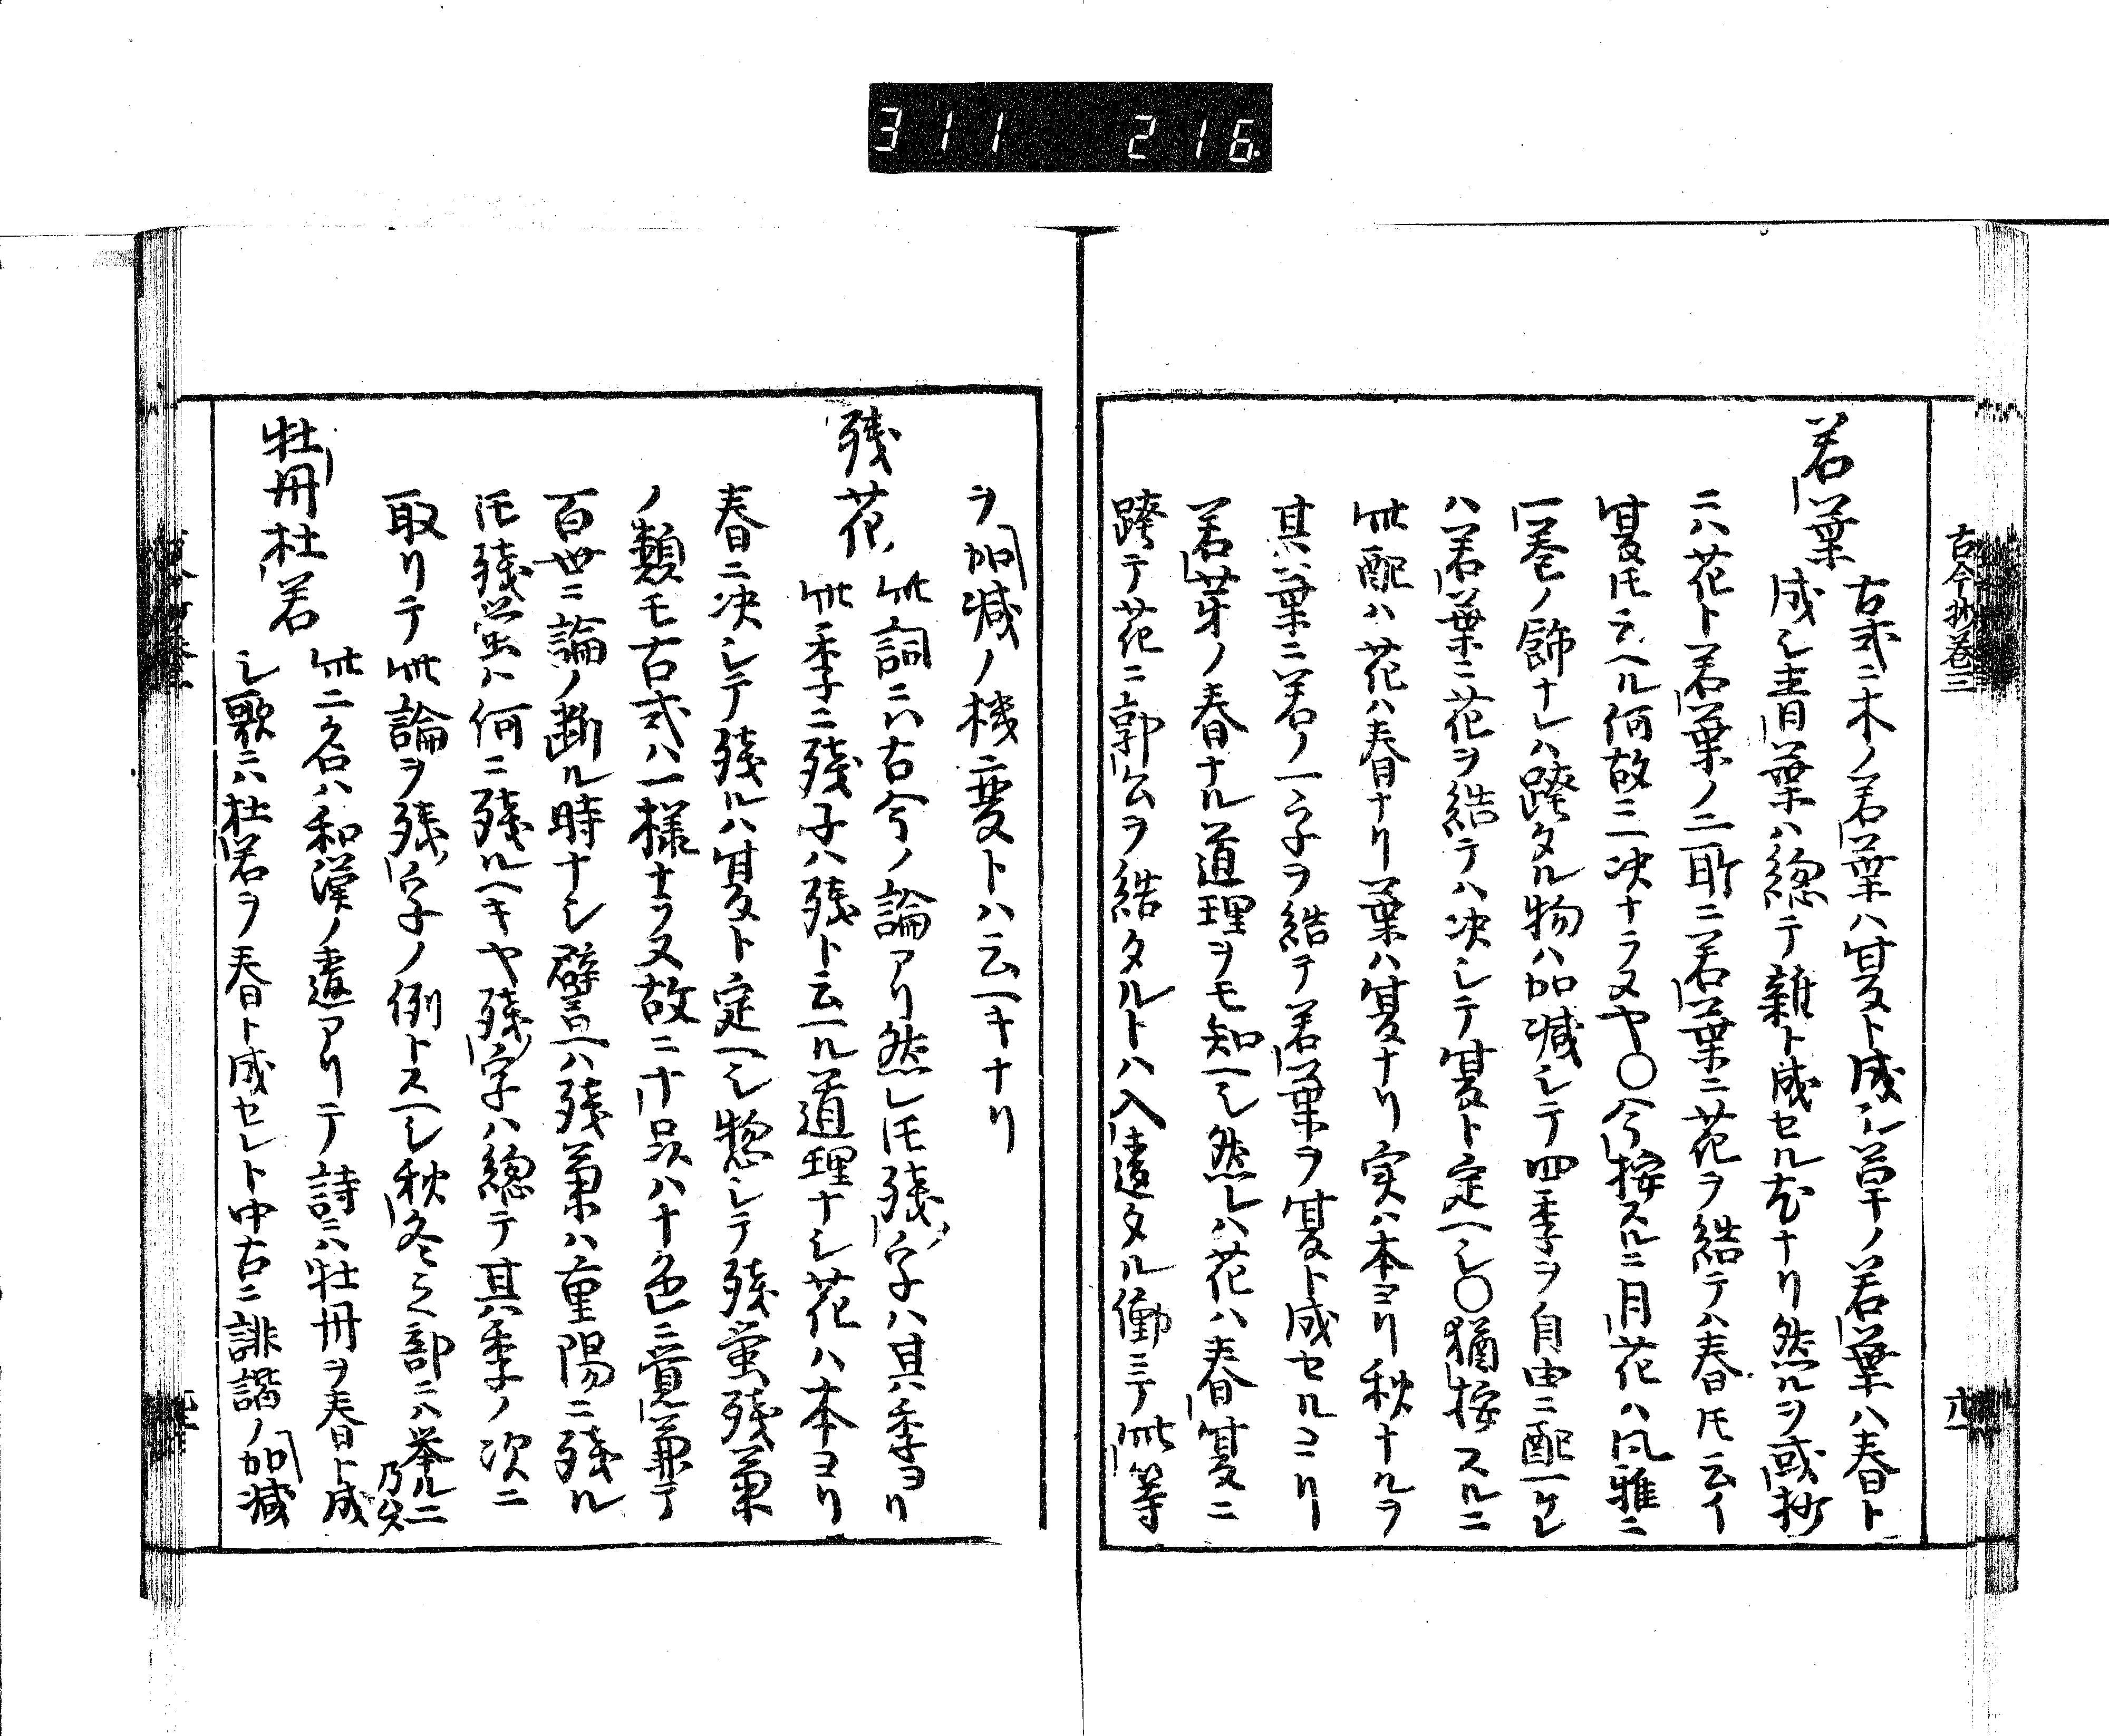 311 216
古今抄巻三
若葉
古式ニ木ノ若葉ハ夏ト成シ草ノ若葉ハ春ト
成シ青葉ハ総テ雑ト成セル也ナリ然ルヲ或抄
ニハ花ト若葉ノ二所ニ若葉ニ花ヲ結テハ春日トモ云イ
夏トモ云ヘル何故ニ決ナラヌヤ〇今按スルニ月花ハ風雅ニ
一巻ノ飾ナレハ蹐タル物ハ加減シテ四季ヲ自由ニ配ヘケレ
ハ若葉ニ花ヲ結テハ決シテ夏ト定ヘシ〇猶按スルニ
此配ハ花ハ春ナリ葉ハ夏ナリ実ハ本ヨリ秋ナルヲ
其ハ葉ニ若ノ一字ヲ結テ若葉ヲ夏ト成セルヨリ
若芽ノ春ナル道理ヲモ知ヘシ然レハ花ハ春夏ニ
テ花ニ郭公ヲ結タルトハ入違タル働ニテ此等
ヲ加減ノ機変トハ云ヘキナリ
残花
此詞ニハ古今ノ論アリ然レトモ残ノ字ハ其季ヨリ
此季ニ残子ハ残ト云ヘル道理ナシ花ハ本ヨリ
春ニ決シテ残ルハ夏ト定ヘシ惣シテ残蛍残菊
ノ類モ古式ハ一様ナラヌ故ニ十品ハ十色ニ覚兼テ
百世ニ論ノ断ル時ナシ譬ヘハ残菊ハ重陽ニ残ル
トモ残蛍ハ何ニ残ルヘキヤ残ノ字ハ総テ其季ノ次ニ
取リテ此論ヲ残ノ字ノ例トスヘシ秋冬之部ニハ挙ルニ
及ハス
牡丹杜若
此二名ハ和漢ノ違アリテ詩ニハ牡丹ヲ春ト成
シ歌ニハ杜若ヲ春ト成セレト中古ニ誹諧ノ加減